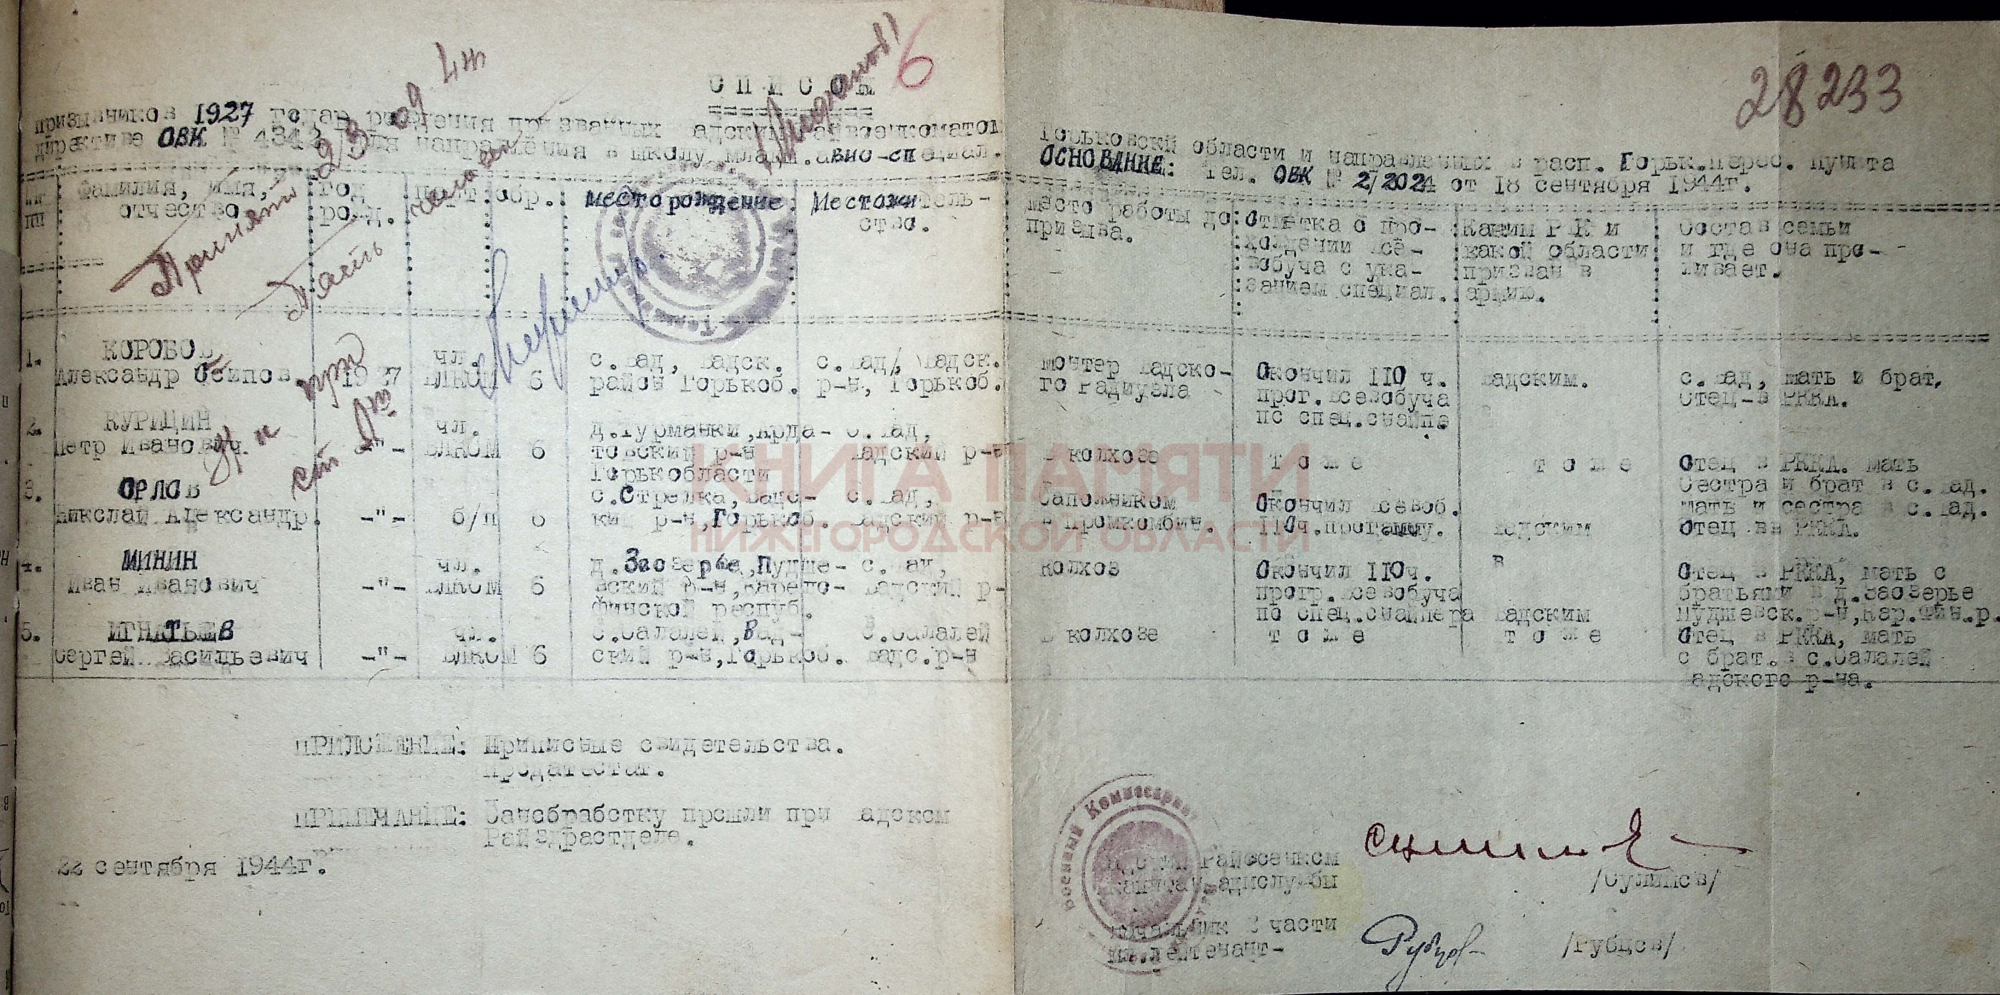 СПИСОК
6
28233
призывников 1927 года рождения призванных Вадским райвоенкоматом Горьковской области и направленных в расп. Горьк.перес. пункта
директиве ОВК № 4342 для направления в школу младш.авио-специал. ОСНОВАНИЕ: Тел. ОВК № 2/2024 от 18 сентября 1944г.
Принято 23 09 44
Часть
пп Фамилия, имя, отчество. Год рожд. обр. место рождение Местожительство. место работы до призыва. Отметка о прохождении всевобуча с указанием специал. Каким РВК и какой области призван в армию. Состав семьи и где она проживает.
1. КОРОБОВ Александр Осипов. 1927 чл. ВЛКСМ 6 с.Вад, Вадск. район Горькоб. с.Вад, Вадск. р-н, Горькоб. монтер Вадского Радиузла Окончил 110 ч. прог.всевобуча по спец.снайпе Вадским. с.Вад, мать и брат. Отец-в РККА.
2. КУРИЦИН Петр Иванович. -"- чл. ВЛКСМ 6 д.Гурманки,Ардатовский р-н Горькобласти с.Вад, Вадский р-н В колхозе то же то же Отец в РККА. мать Сестра и брат в с.Вад.
3. ОРЛОВ Николай Александр. -"- б/п 6 с.Стрелка,Вадский р-н,Горькоб. с.Вад, Вадский р-н Сапожником в промкомбин. Окончил всевоб. 110ч.программу. Вадским мать и сестра в с.Вад. Отец в РККА.
4. МИНИН Иван Иванович -"- чл. ВЛКСМ 6 д.Заозерье,Пудшевский р-н,Карело-финской респуб. с.Вад, Вадский р- колхоз Окончил 110ч. прогр.всевобуча по спец.снайпера Вадским Отец в РККА, мать с братьями в д.Заозерье Пудшевск.р-н,Кар.Фин.р.
5. ИГНАТЬЕВ Сергей Васильевич -"- чл. ВЛКСМ 6 с.Салалей,Вадский р-н,Горькоб. с.Салалей Вадс.р-н В колхозе то же то же Отец в РККА, мать с брат.в с.Салалей Вадского р-на.
КНИГА ПАМЯТИ
НИЖЕГОРОДСКОЙ ОБЛАСТИ
ПРИЛОЖЕНИЕ: Приписные свидетельства.
Продатестат.
ПРИМЕЧАНИЕ: Санобработку прошли при Вадском
Райздравотделе.
22 сентября 1944г.
Военный Комиссариат
Райвоенком
капитан адмслужбы /Сулимов/
Начальник 2 части
лейтенант- Рубцов /Рубцов/